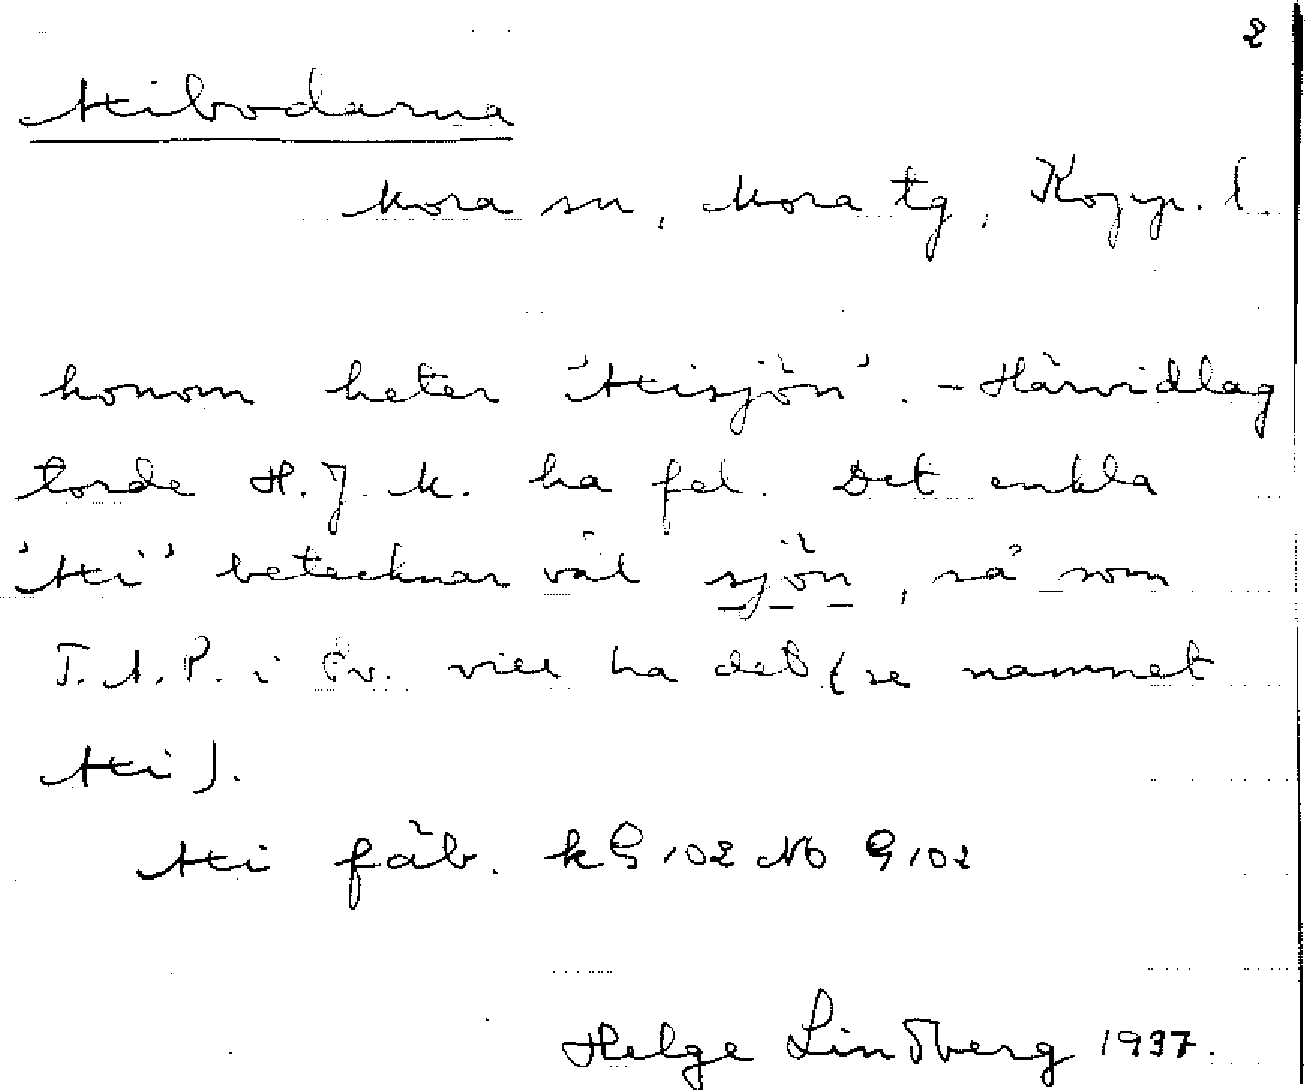 2
Hibodarna
Mora sn, Mora tg, Kopp. l.
honom heter 'Hisjön'. – Härvidlag
torde H. J. M. ha fel. Det enkla
'Hi' betecknar väl sjön, så som
T. A. P. i Öv. vill ha det (se namnet
Hi).
Hi fäb. k G 102 No G 102
Helge Lindberg 1937.